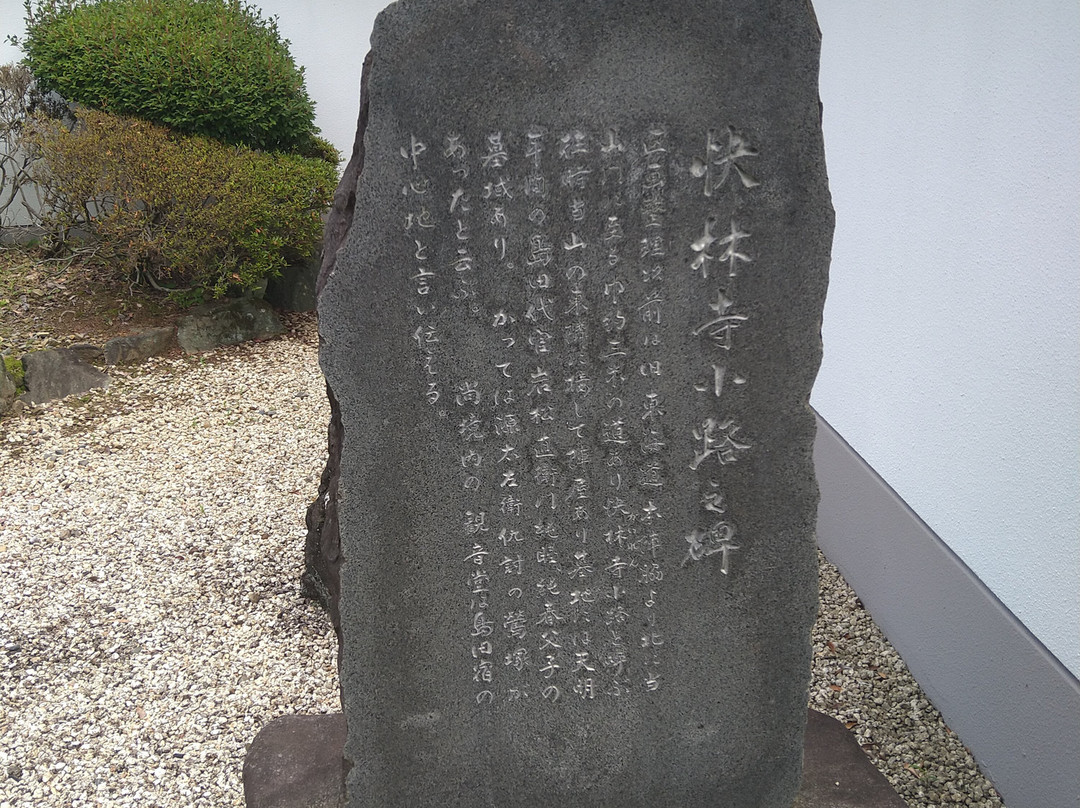 快林寺小路之碑
区画整理以前は旧東海道本陣脇より北に当
山門に至る巾約三米の道あり快林寺小路と呼ぶ
往時当山の東隣に接して陣屋あり墓地には天明
年間の島田代官岩松直衛川純睦純春父子の
墓域あり。かつては源太左衛仇討の鶯塚が
あったと云ふ。尚境内の観音堂は島田宿の
中心地と言い伝える。